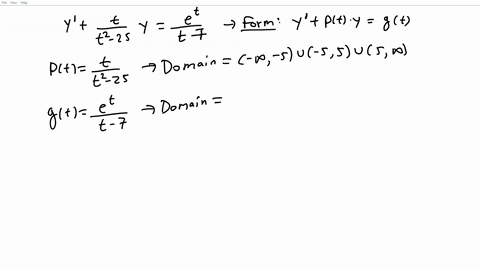 y' + t/(t²-25) y = e^t/(t-7) → Form: y' + P(t)·y = g(t)
P(t) = t/(t²-25) → Domain = (-∞, -5) ∪ (-5, 5) ∪ (5, ∞)
g(t) = e^t/(t-7) → Domain =